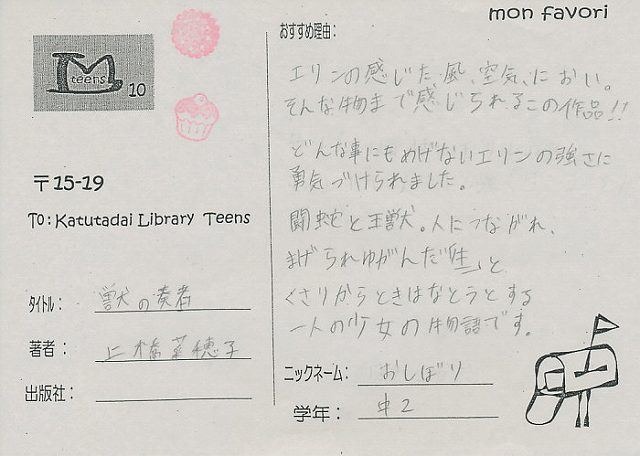 mon favori
teens
10
〒15-19
To: Katutadai Library Teens
タイトル: 獣の奏者
著者: 上橋菜穂子
出版社:
おすすめ理由:
エリンの感じた、風、空気、におい。
そんな物まで感じられるこの作品!!
どんな事にもめげないエリンの強さに
勇気づけられました。
闘蛇と王獣。人につながれ、
まげられゆがんだ「生」と
くさりからときはなとうとする
一人の少女の物語です。
ニックネーム: おしぼり
学年: 中2